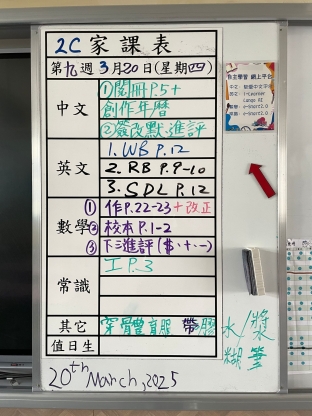 2C 家課表
第九週 3月20日(星期四)
中文
①閱冊P.5+
創作年曆
②簽改默.進評
英文
1. WB P.12
2. RB P.9-10
3. SDL P.12
數學
① 作P.22-23+改正
② 校本P.1-2
③ 下三進評($.+.-)
常識
工P.3
其它
穿體育服 帶膠水/漿糊筆
值日生
20th March, 2025
自主學習 網上平台